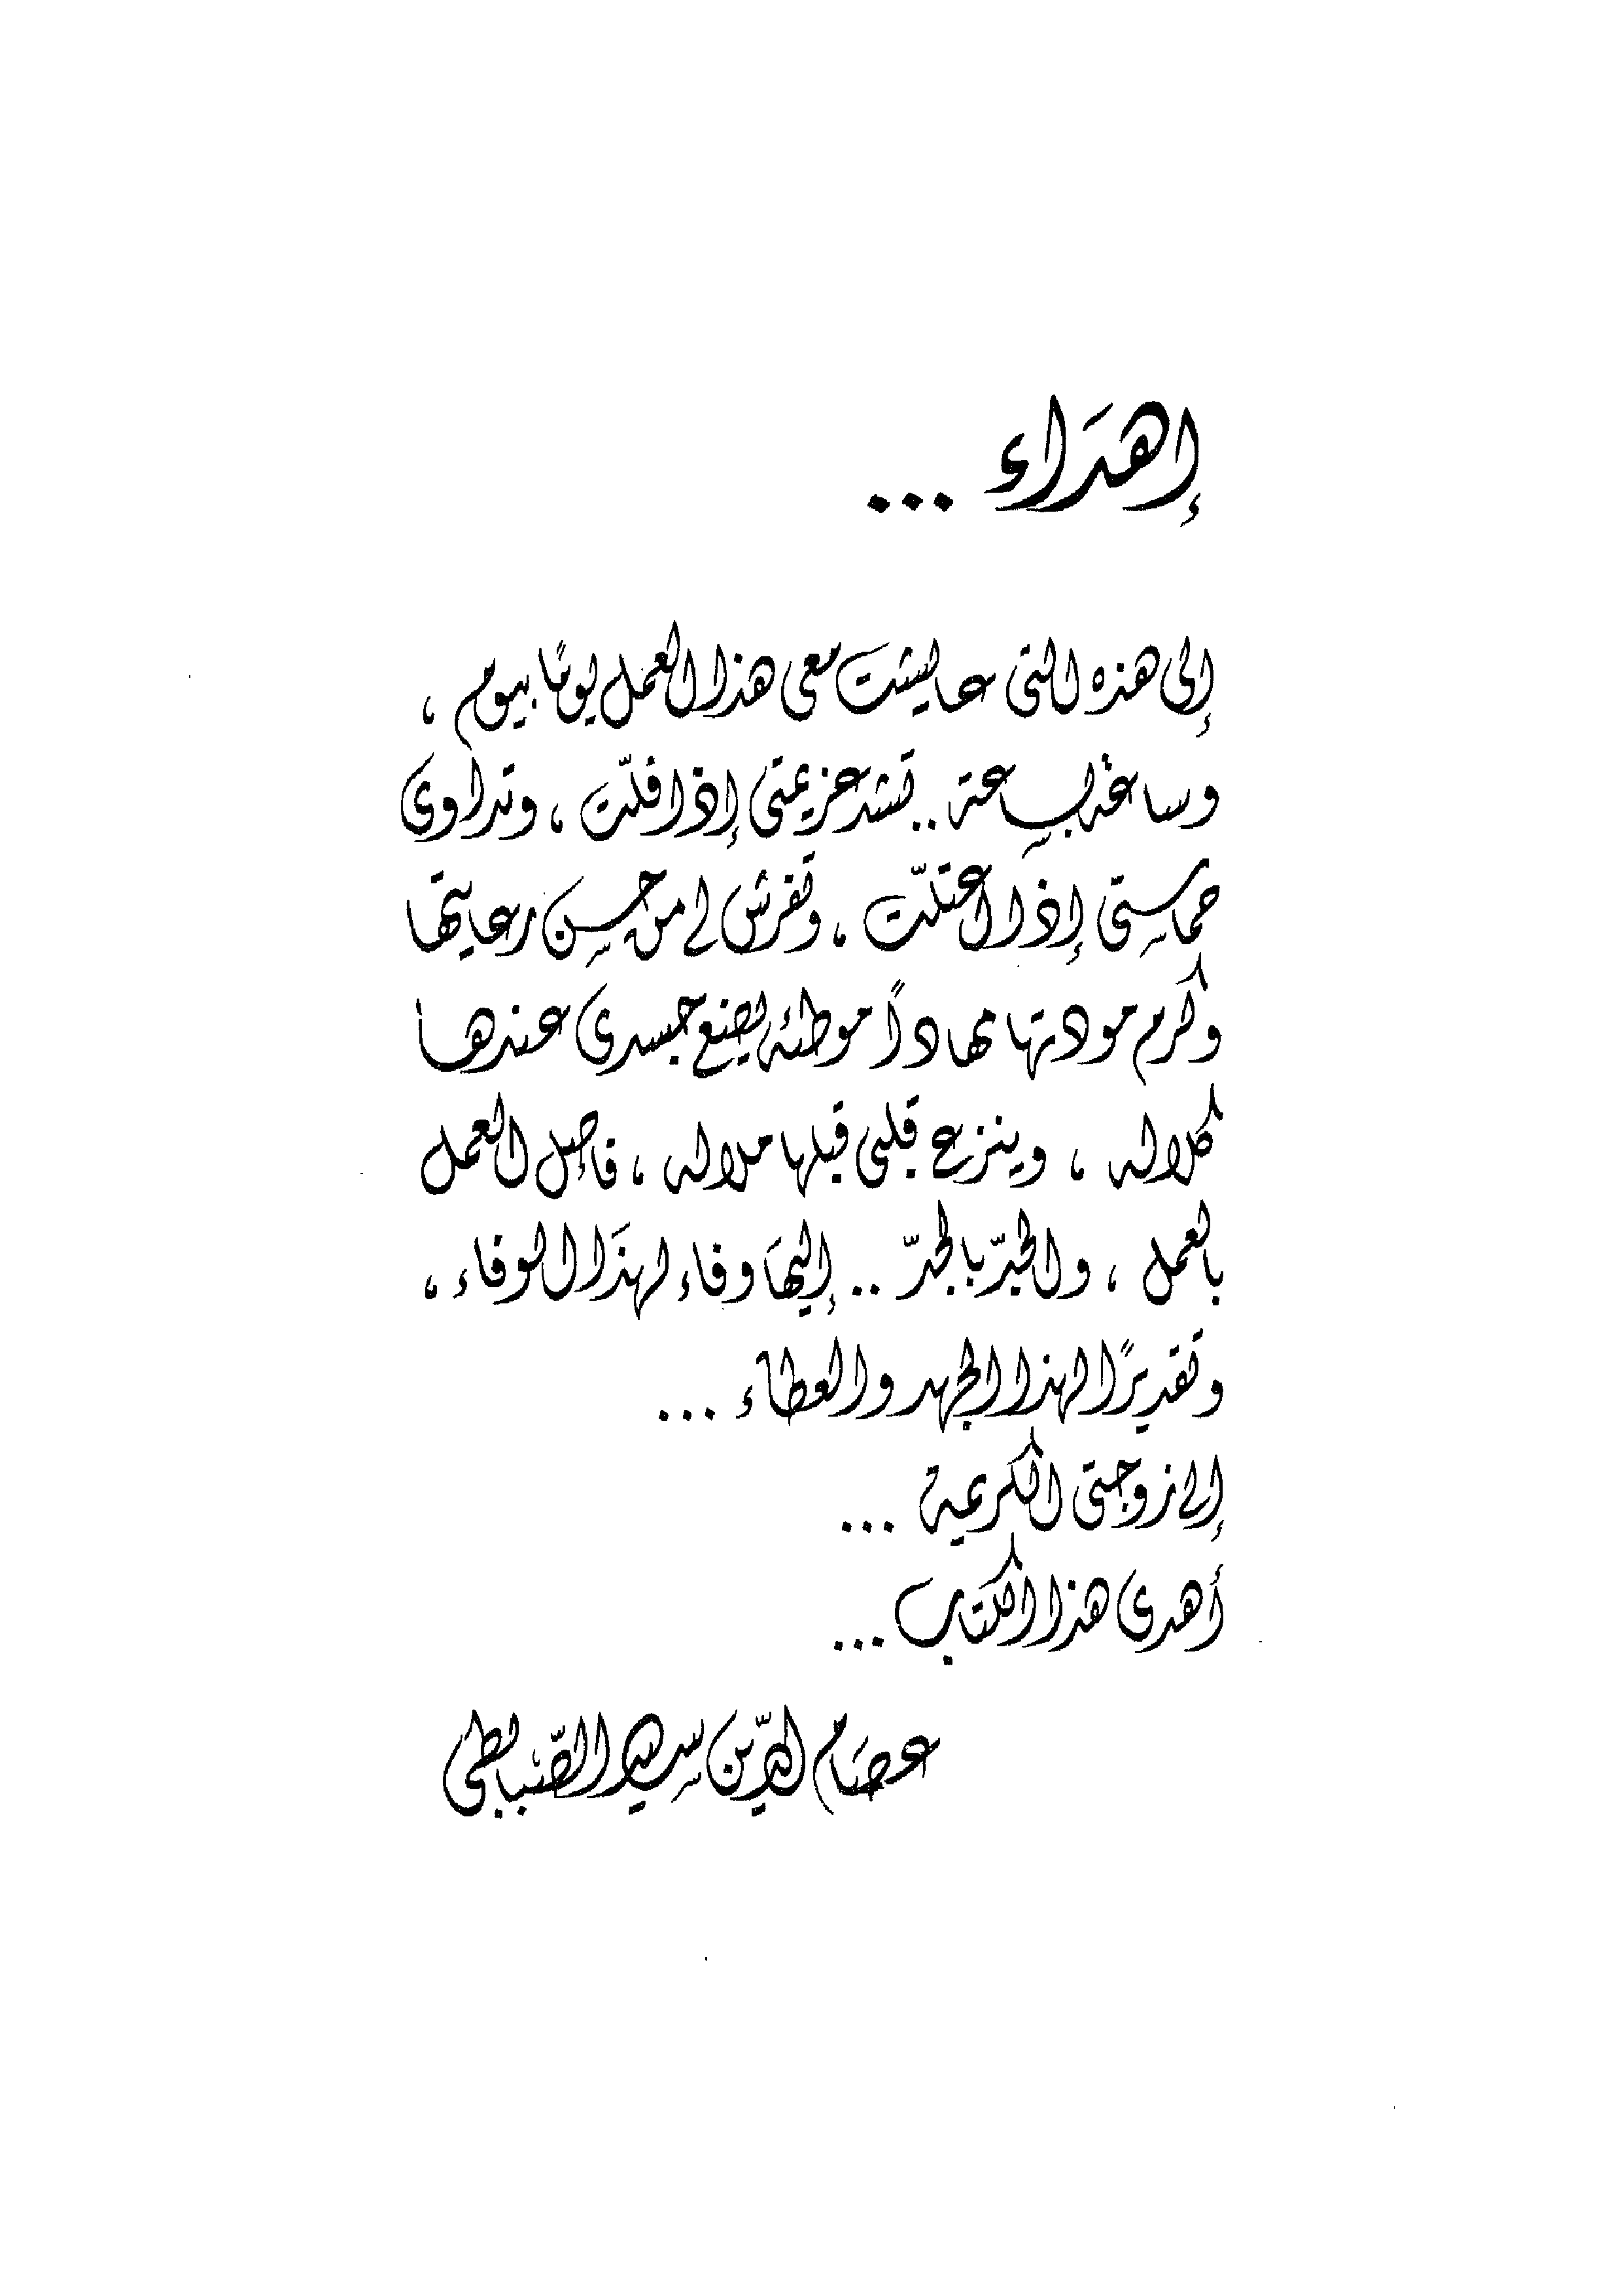 إهداء ...
إلى هذه التى عايشت معى هذا العمل يومًا بيوم ،
وساعة بساعة .. تشد عزيمتى إذا فلّت ، وتداوى
حماستى إذا اعتلّت ، وتفرش لى من حسن رعايتها
وكرم مودتها مهادًا موطئه يضع جسدى عندها
كلاله ، وينزع قلبى قبلها ملاله ، فأصل العمل
بالعمل ، والجدّ بالجدّ .. إليها وفاء لهذا الوفاء ،
وتقديرًا لهذا الجهد والعطاء ...
إلى زوجتى الكريمة ...
أهدى هذا الكتاب ...
عصام الدّين سيد الصّبابطى